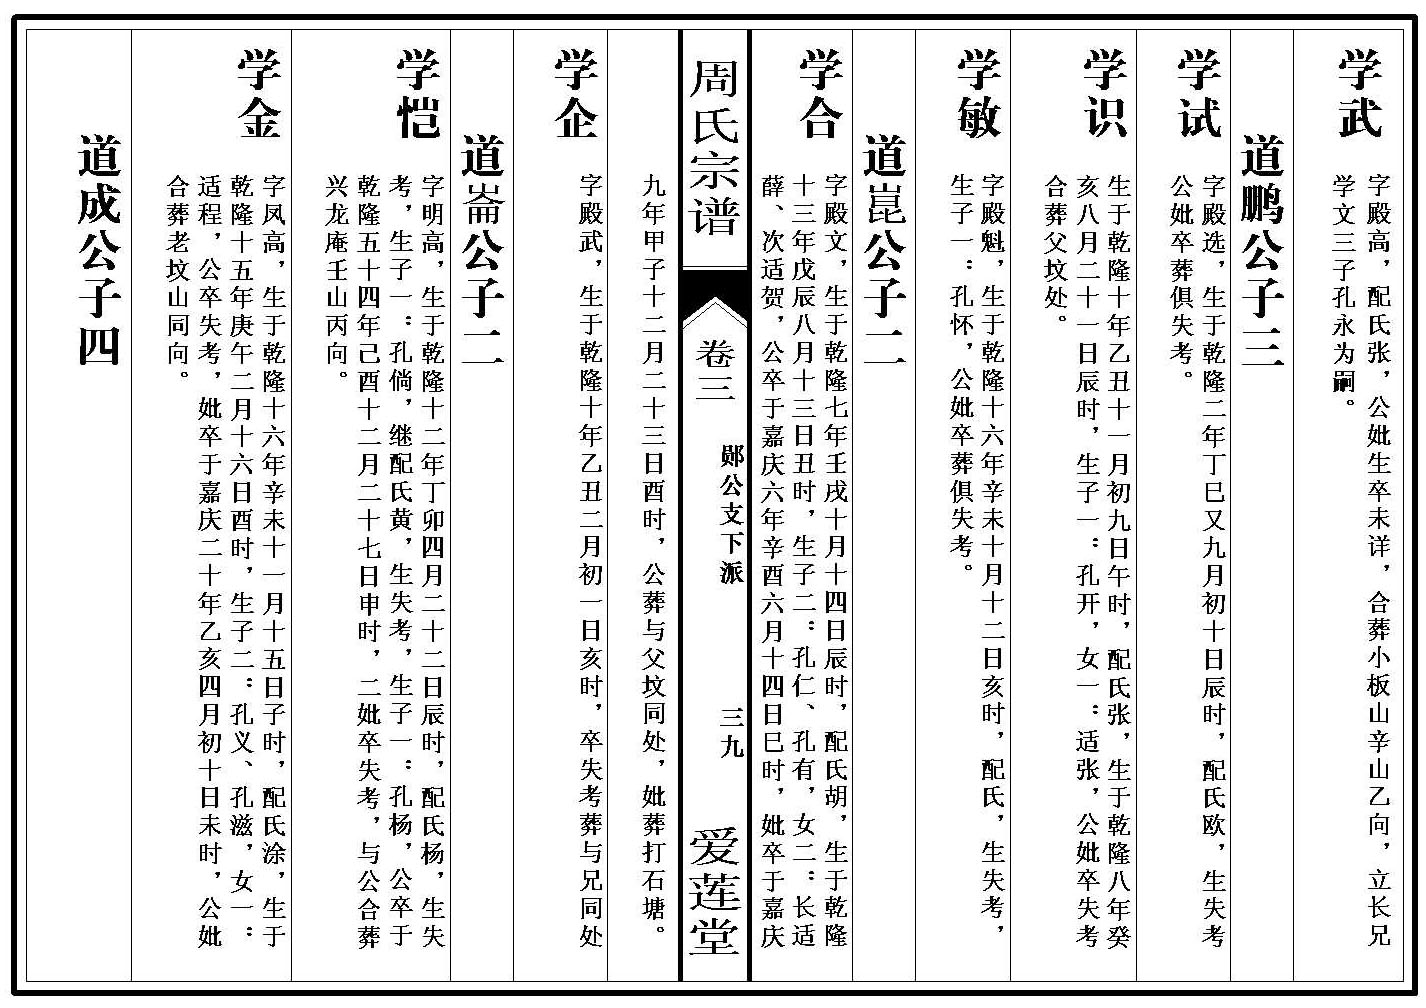 学武
字殿高，配氏张，公妣生卒未详，合葬小板山辛山乙向，立长兄
学文三子孔永为嗣。
道鹏公子三
学试
字殿选，生于乾隆二年丁巳又九月初十日辰时，配氏欧，生失考
公妣卒葬俱失考。
学识
生于乾隆十年乙丑十一月初九日午时，配氏张，生于乾隆八年癸
亥八月二十一日辰时，生子一：孔开，女一：适张，公妣卒失考
合葬父坟处。
学敏
字殿魁，生于乾隆十六年辛未十月十二日亥时，配氏，生失考，
生子一：孔怀，公妣卒葬俱失考。
道崑公子二
学合
字殿文，生于乾隆七年壬戌十月十四日辰时，配氏胡，生于乾隆
十三年戊辰八月十三日丑时，生子二：孔仁、孔有，女二：长适
薛、次适贺，公卒于嘉庆六年辛酉六月十四日巳时，妣卒于嘉庆
周氏宗谱
卷三
郧公支下派
三九
爱莲堂
九年甲子十二月二十三日酉时，公葬与父坟同处，妣葬打石塘。
学企
字殿武，生于乾隆十年乙丑二月初一日亥时，卒失考葬与兄同处
道崙公子二
学恺
字明高，生于乾隆十二年丁卯四月二十二日辰时，配氏杨，生失
考，生子一：孔倘，继配氏黄，生失考，生子一：孔杨，公卒于
乾隆五十四年己酉十二月二十七日申时，二妣卒失考，与公合葬
兴龙庵壬山丙向。
学金
字凤高，生于乾隆十六年辛未十一月十五日子时，配氏涂，生于
乾隆十五年庚午二月十六日酉时，生子二：孔义、孔滋，女一：
适程，公卒失考，妣卒于嘉庆二十年乙亥四月初十日未时，公妣
合葬老坟山同向。
道成公子四